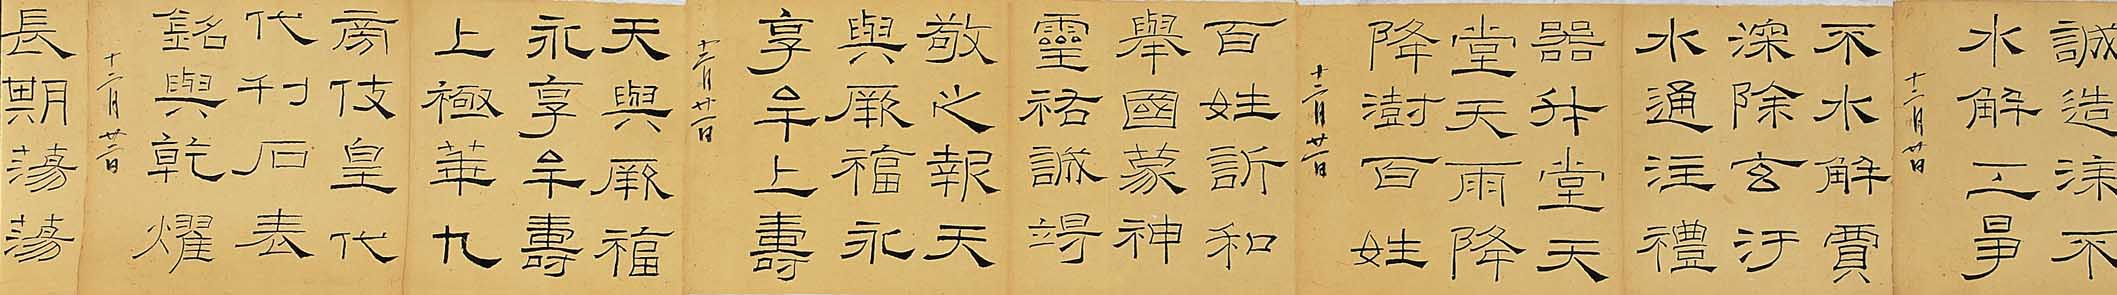 誠造漆不
水解工爭
十二月廿日
不水解賈
深除玄汙
水通注禮
器升堂天
堂天雨降
降澍百姓
十二月廿一日
百姓訢和
舉國蒙神
靈祐誠竭
敬之報天
與厥福永
享牟上壽
十二月廿二日
天與厥福
永享牟壽
上極華九
旁伎皇代
代刊石表
銘與乾燿
十二月廿三日
長期蕩蕩